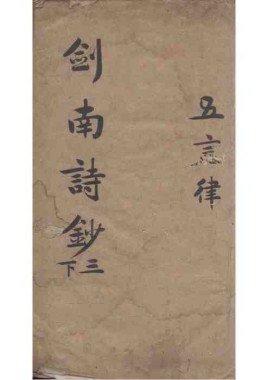 五言律
劍南詩鈔
三下